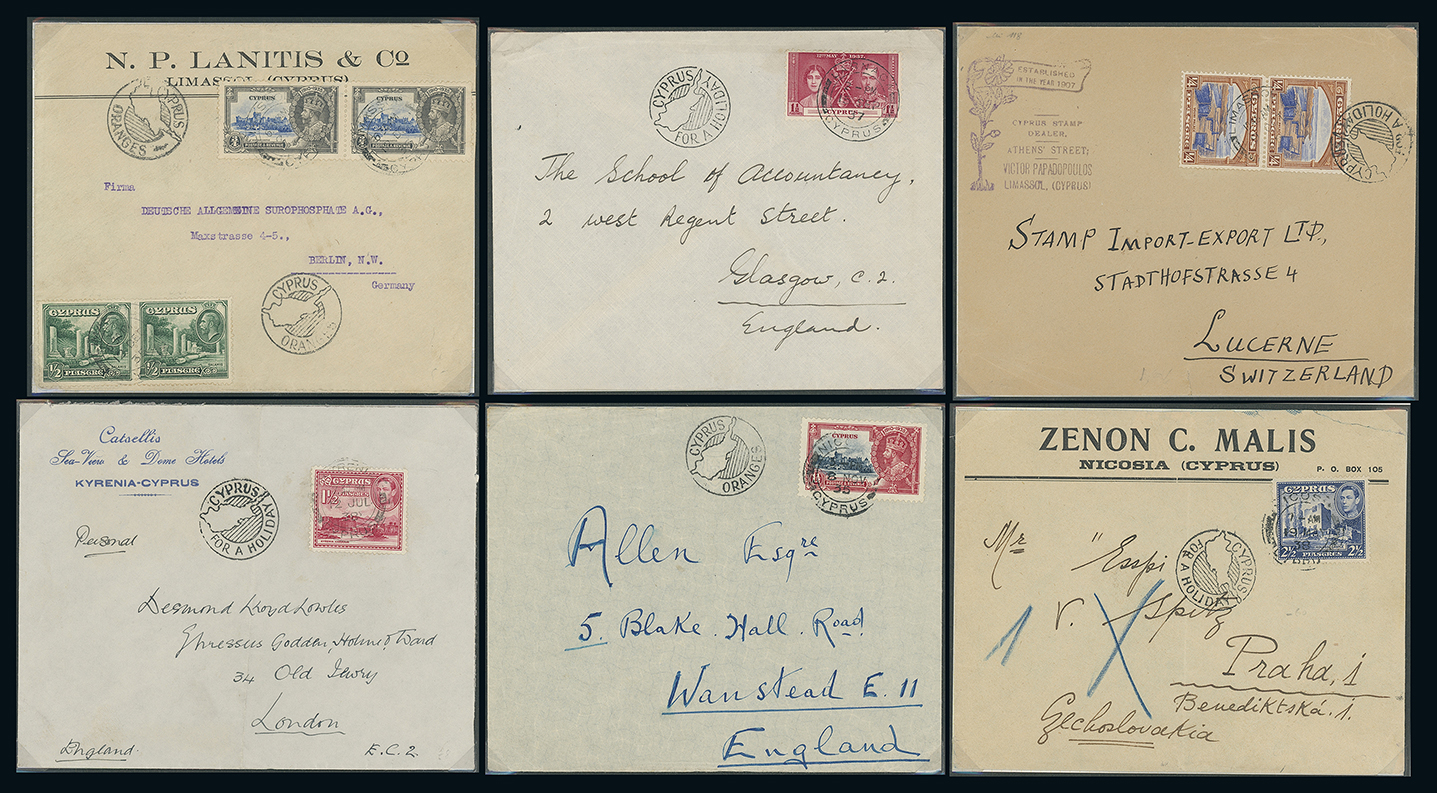 N. P. LANITIS & Co
LIMASSOL (CYPRUS)
CYPRUS
ORANGES
CYPRUS
CYPRUS
POSTAGE & REVENUE
Firma
DEUTSCHE ALLGEMEINE SUROPHOSPHATE A.G.,
Maxstrasse 4-5.,
BERLIN, N.W.
Germany
CYPRUS
ORANGES
CYPRUS
CYPRUS
½ PIASTRE
½ PIASTRE
CYPRUS
FOR A HOLIDAY
12TH MAY 1937
CYPRUS
The School of Accountancy,
2 west Regent Street.
Glasgow, C.2.
England.
ESTABLISHED
IN THE YEAR 1907
CYPRUS STAMP
DEALER,
ATHENS' STREET;
VICTOR PAPADOPOULOS
LIMASSOL, (CYPRUS)
LIMASS
CYPRUS
FOR A HOLIDAY
STAMP IMPORT-EXPORT LTD.,
STADTHOFSTRASSE 4
LUCERNE
SWITZERLAND
Catsellis
Sea-View & Dome Hotels
KYRENIA-CYPRUS
CYPRUS
FOR A HOLIDAY
1½
PIASTRES
JUL
Personal
Desmond Lloyd Lowles
Godden, Holme & Ward
34 Old Jewry
London
England.
E.C.2.
CYPRUS
ORANGES
CYPRUS
NICOS
NOV
CYPRUS
Allen Esqre
5. Blake Hall Road
Wanstead E. 11
England
ZENON C. MALIS
NICOSIA (CYPRUS)
P. O. BOX 105
CYPRUS
2½ PIASTRES 2½
CYPRUS
FOR A HOLIDAY
Mr "Esspi
V. Spitz
1 X
Praha, 1
Benediktská. 1.
Czechoslovakia